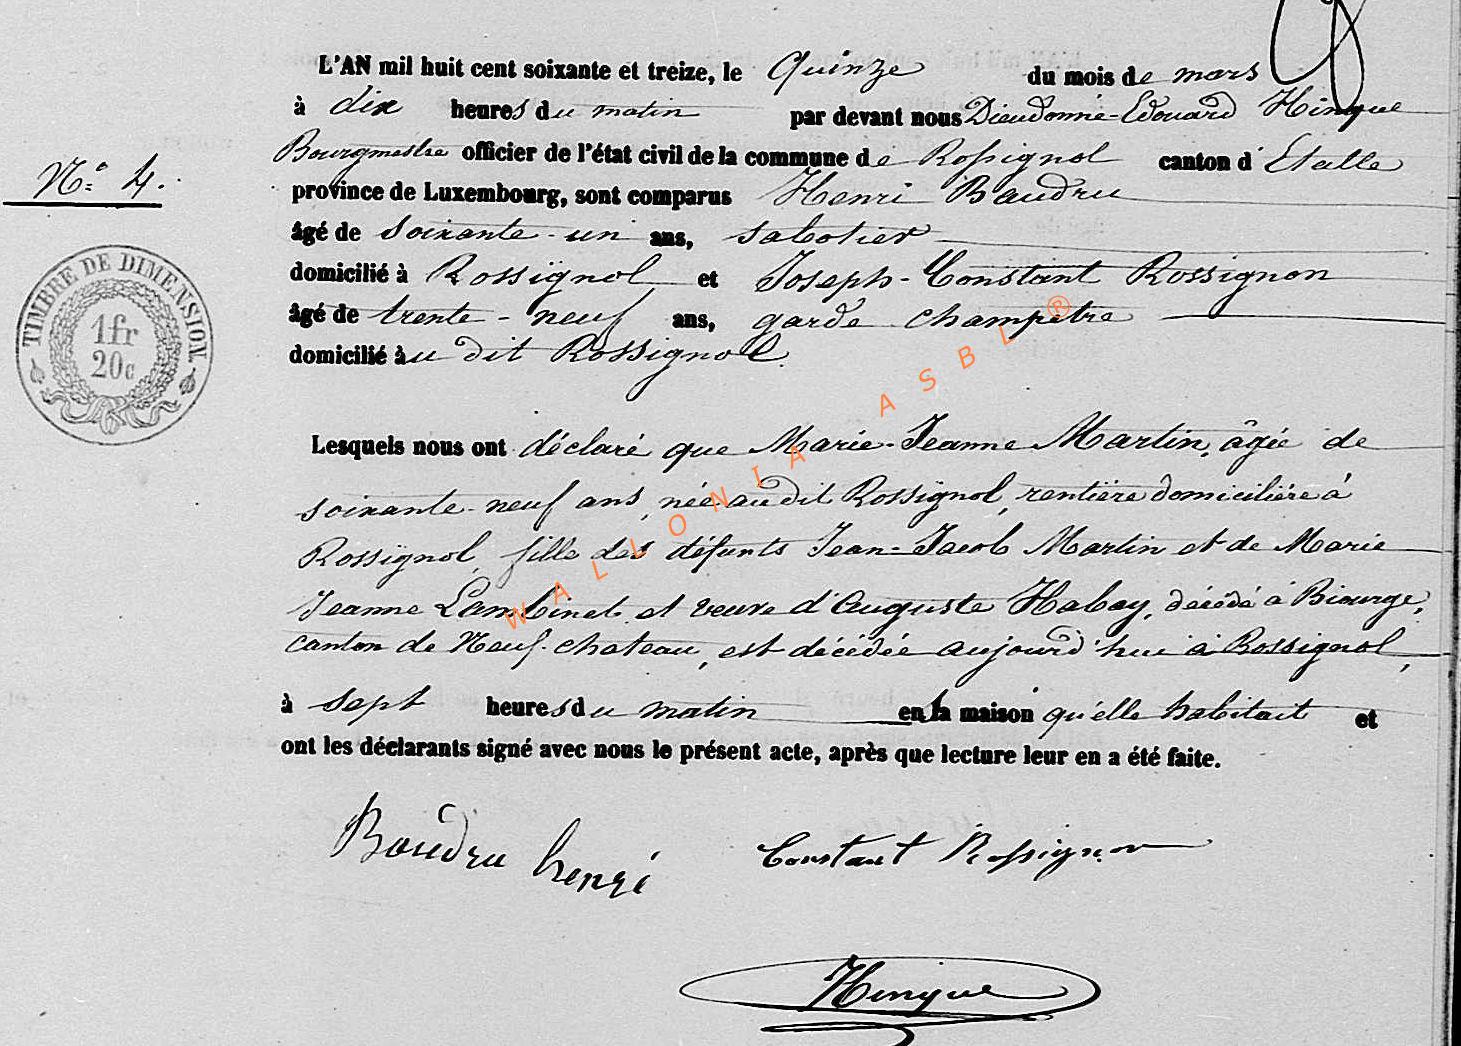 L'AN mil huit cent soixante et treize, le Quinze du mois de mars
à dix heures du matin par devant nous Dieudonné-Edouard Hinque
Bourgmestre officier de l'état civil de la commune de Rossignol canton d'Etalle
N.° 4.
province de Luxembourg, sont comparus Henri Baudru
âgé de soixante-un ans, sabotier
domicilié à Rossignol et Joseph-Constant Rossignon
âgé de trente-neuf ans, garde champetre
domicilié au dit Rossignol.
TIMBRE DE DIMENSION.
1fr
20c
Lesquels nous ont déclaré que Marie-Jeanne Martin, âgée de
soixante-neuf ans, née audit Rossignol, rentière domiciliée à
Rossignol, fille des défunts Jean-Jacob Martin et de Marie
Jeanne Lambinet, et veuve d'Auguste Habay, décédé à Biourge,
canton de Neuf-chateau, est décédée aujourd'hui à Rossignol,
à sept heures du matin en la maison qu'elle habitait et
ont les déclarants signé avec nous le présent acte, après que lecture leur en a été faite.
Baudru henri Constant Rossignon
Hinque
WALLONIA ASBL ®